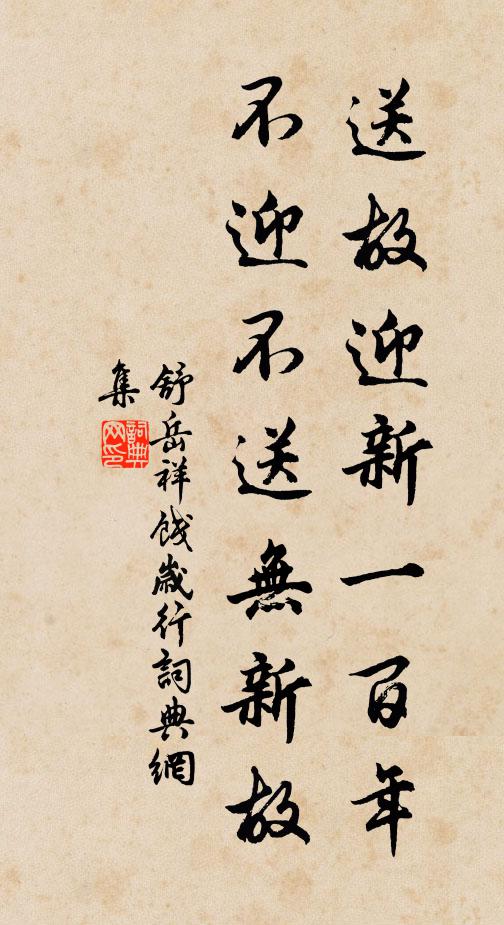 送故迎新一百年
不迎不送無新故
舒岳祥餞歲行詞典網
集
詞典
网印